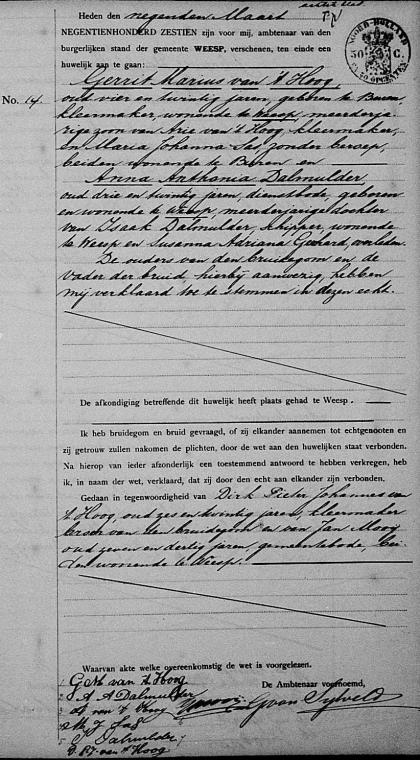 Heden den negenden Maart
NEGENTIENHONDERD ZESTIEN zijn voor mij, ambtenaar van den
burgerlijken stand der gemeente WEESP, verschenen, ten einde een
huwelijk aan te gaan:
NOORD-HOLLAND
50 C.
No. 14.
Gerrit Marius van 't Hoog,
oud vier en twintig jaren, geboren te Buren,
kleermaker, wonende te Weesp, meerderja-
rige zoon van Arie van 't Hoog, kleermaker,
en Maria Johanna Sas, zonder beroep,
beiden wonende te Buren en
Anna Anthonia Dalmulder,
oud drie en twintig jaren, dienstbode, geboren
en wonende te Weesp, meerderjarige dochter
van Izaak Dalmulder, schipper, wonende
te Weesp en Susanna Adriana, overleden.
De ouders van den bruidegom en de
vader der bruid, hierbij aanwezig, hebben
mij verklaard toe te stemmen in dezen echt.
De afkondiging betreffende dit huwelijk heeft plaats gehad te Weesp.
Ik heb bruidegom en bruid gevraagd, of zij elkander aannemen tot echtgenooten en
zij getrouw zullen nakomen de plichten, door de wet aan den huwelijken staat verbonden.
Na hierop van ieder afzonderlijk een toestemmend antwoord te hebben verkregen, heb
ik, in naam der wet, verklaard, dat zij door den echt aan elkander zijn verbonden.
Gedaan in tegenwoordigheid van Dirk Pieter Johannes van
't Hoog, oud zes en twintig jaren, kleermaker
broer van den bruidegom en van Jan Mooij
oud zeven en dertig jaren, gemeentebode, bei-
den wonende te Weesp.
Waarvan akte welke overeenkomstig de wet is voorgelezen.
De Ambtenaar voornoemd,
G M van 't Hoog
A A Dalmulder
A van 't Hoog
M J Sas
J Dalmulder
D. P. J. van 't Hoog
JMooij